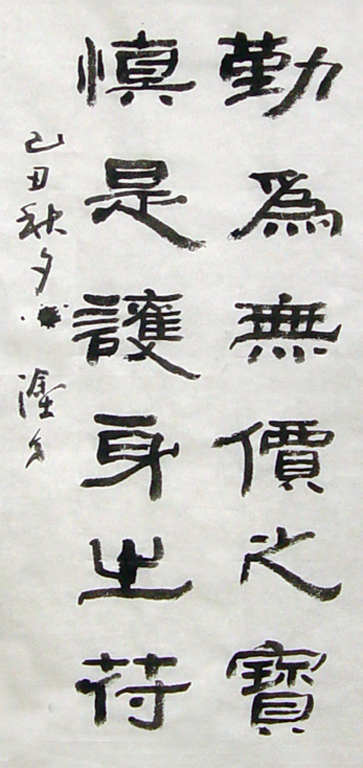 勤為無價之寶
慎是護身之符
己丑秋夕